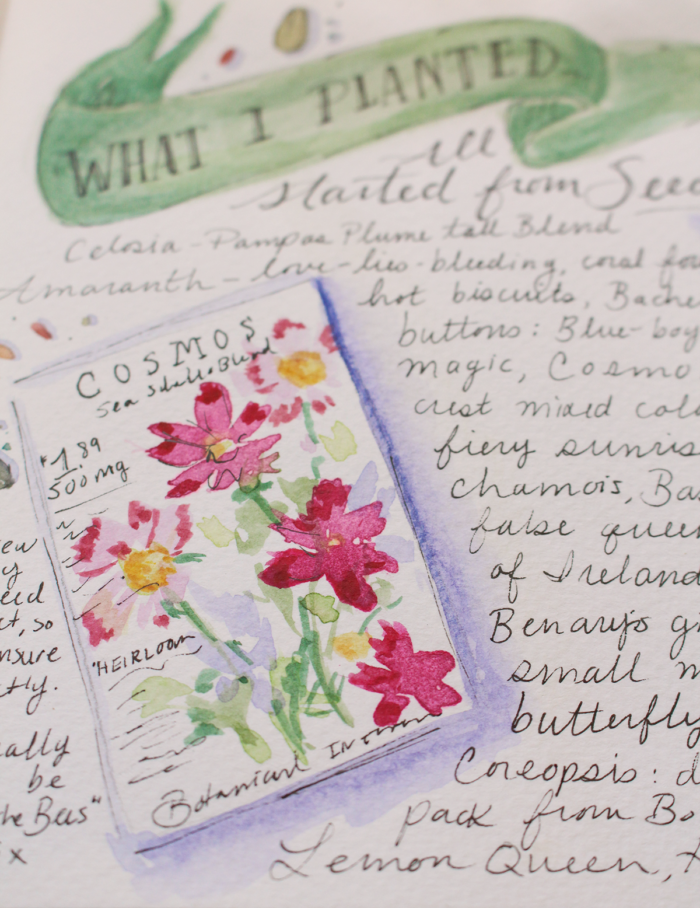 WHAT I PLANTED
All
started from Seed
Celosia - Pampas Plume tall Blend
Amaranth - love-lies-bleeding, coral
hot biscuits, Bache
buttons: Blue-boy
magic, Cosmo
crest mixed col
fiery sunris
chamois, Ba
false queen
of Ireland
Benary's g
small m
butterfly
Coreopsis: d
pack from Bo
Lemon Queen,
COSMOS
Sea Shells Blend
$1.89
500 mg
"HEIRLOOM"
Botanical
ew
y
eed
ct, so
nsure
tly.
ally
be
the Bees"
ix